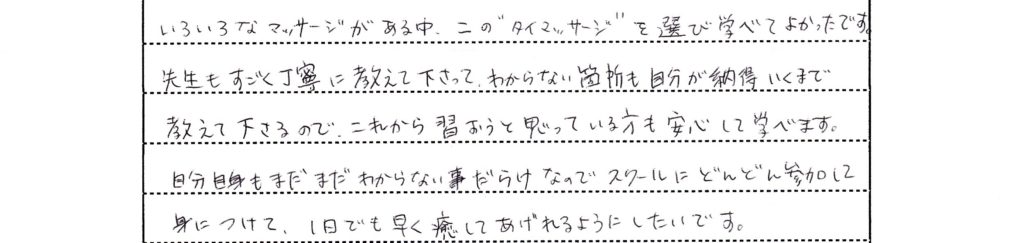 いろいろなマッサージがある中、この"タイマッサージ"を選び学べてよかったです。
先生もすごく丁寧に教えて下さって、わからない箇所も自分が納得いくまで
教えて下さるので、これから習おうと思っている方も安心して学べます。
自分自身もまだまだわからない事だらけなのでスクールにどんどん参加して
身につけて、1日でも早く癒してあげれるようにしたいです。